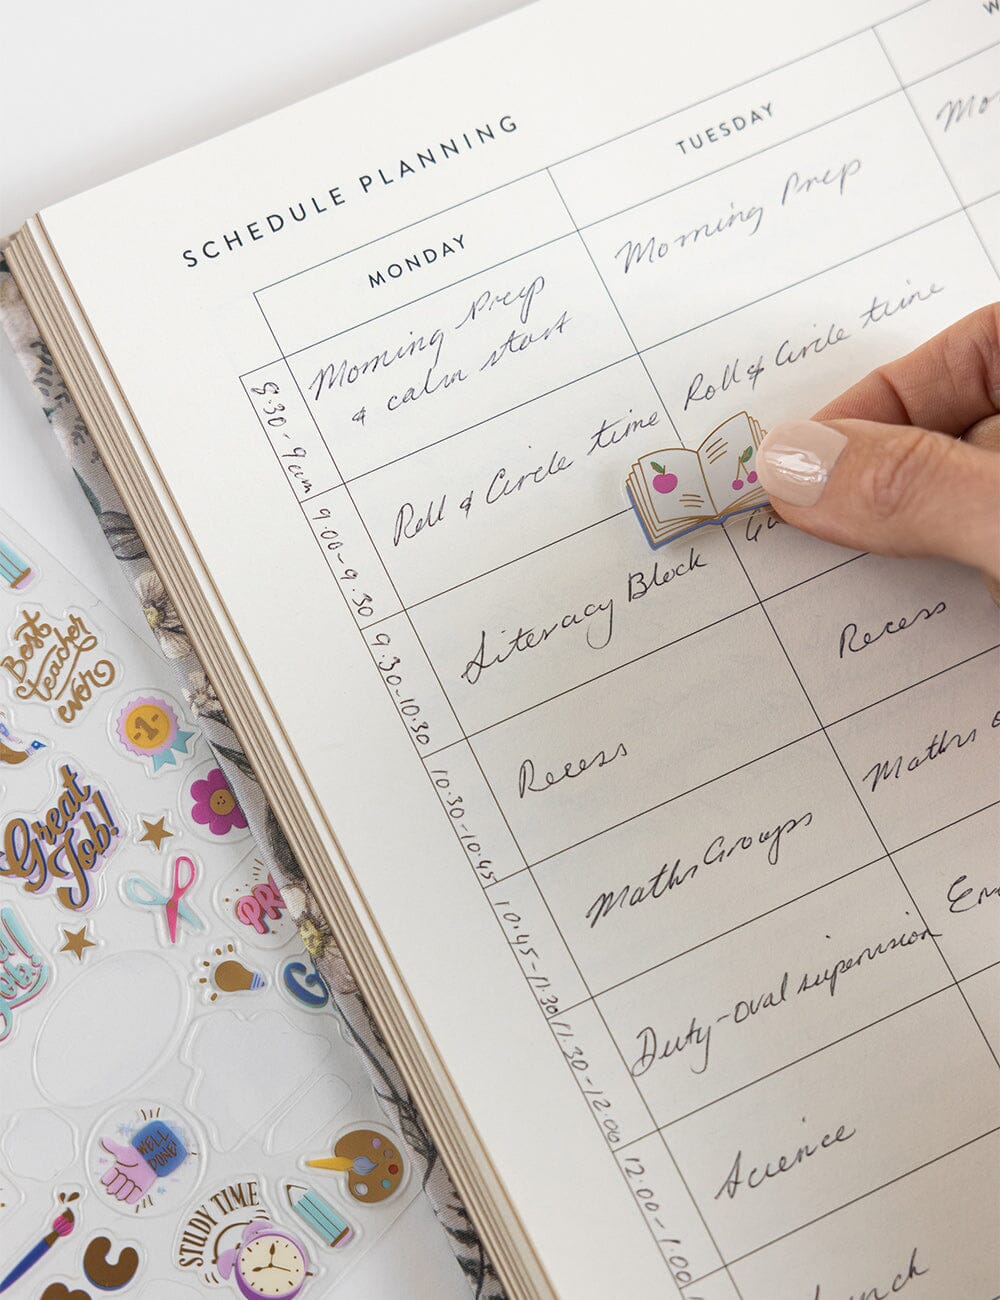 SCHEDULE PLANNING
MONDAY
TUESDAY
8.30-9am
Morning Prep
& calm start
Morning Prep
9.00-9.30
Roll & Circle time
Roll & Circle time
9.30-10.30
Literacy Block
10.30-10.45
Recess
Recess
10.45-11.30
Maths Groups
Maths
11.30-12.00
Duty-oval supervision
12.00-1.00
Science
Best
teacher
ever
-1-
Great
Job!
WELL
DONE
STUDY TIME